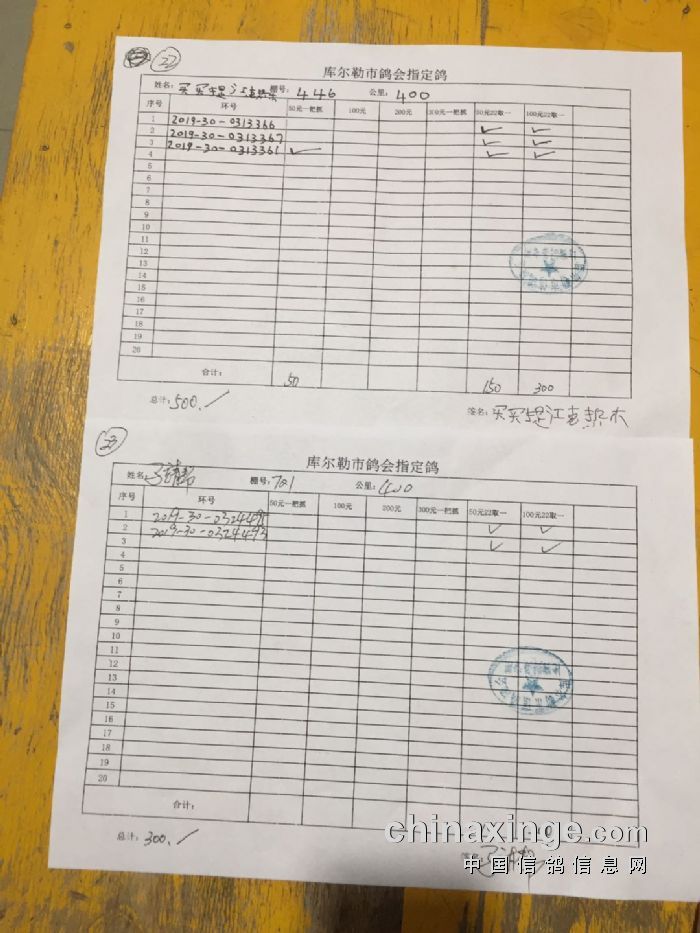 22
库尔勒市鸽会指定鸽
姓名: 买买提江吉热木 棚号: 446 公里: 400
序号 环号 50元一把抓 100元 200元 300元一把抓 50元22取一 100元22取一
1 2019-30-0313366 ✓ ✓
2 2019-30-0313367 ✓ ✓
3 2019-30-0313361 ✓ ✓ ✓
4
5
6
7
8
9
10
11
12
13
14
15
16
17
18
19
20
合计: 50 150 300
总计: 500.
签名: 买买提江吉热木
23
库尔勒市鸽会指定鸽
姓名: 棚号: 701 公里: 400
序号 环号 50元一把抓 100元 200元 300元一把抓 50元22取一 100元22取一
1 2019-30-0324495 ✓ ✓
2 2019-30-0324493 ✓ ✓
3
4
5
6
7
8
9
10
11
12
13
14
15
16
17
18
19
20
合计:
总计: 300.
签名:
chinaxinge.com
中国信鸽信息网